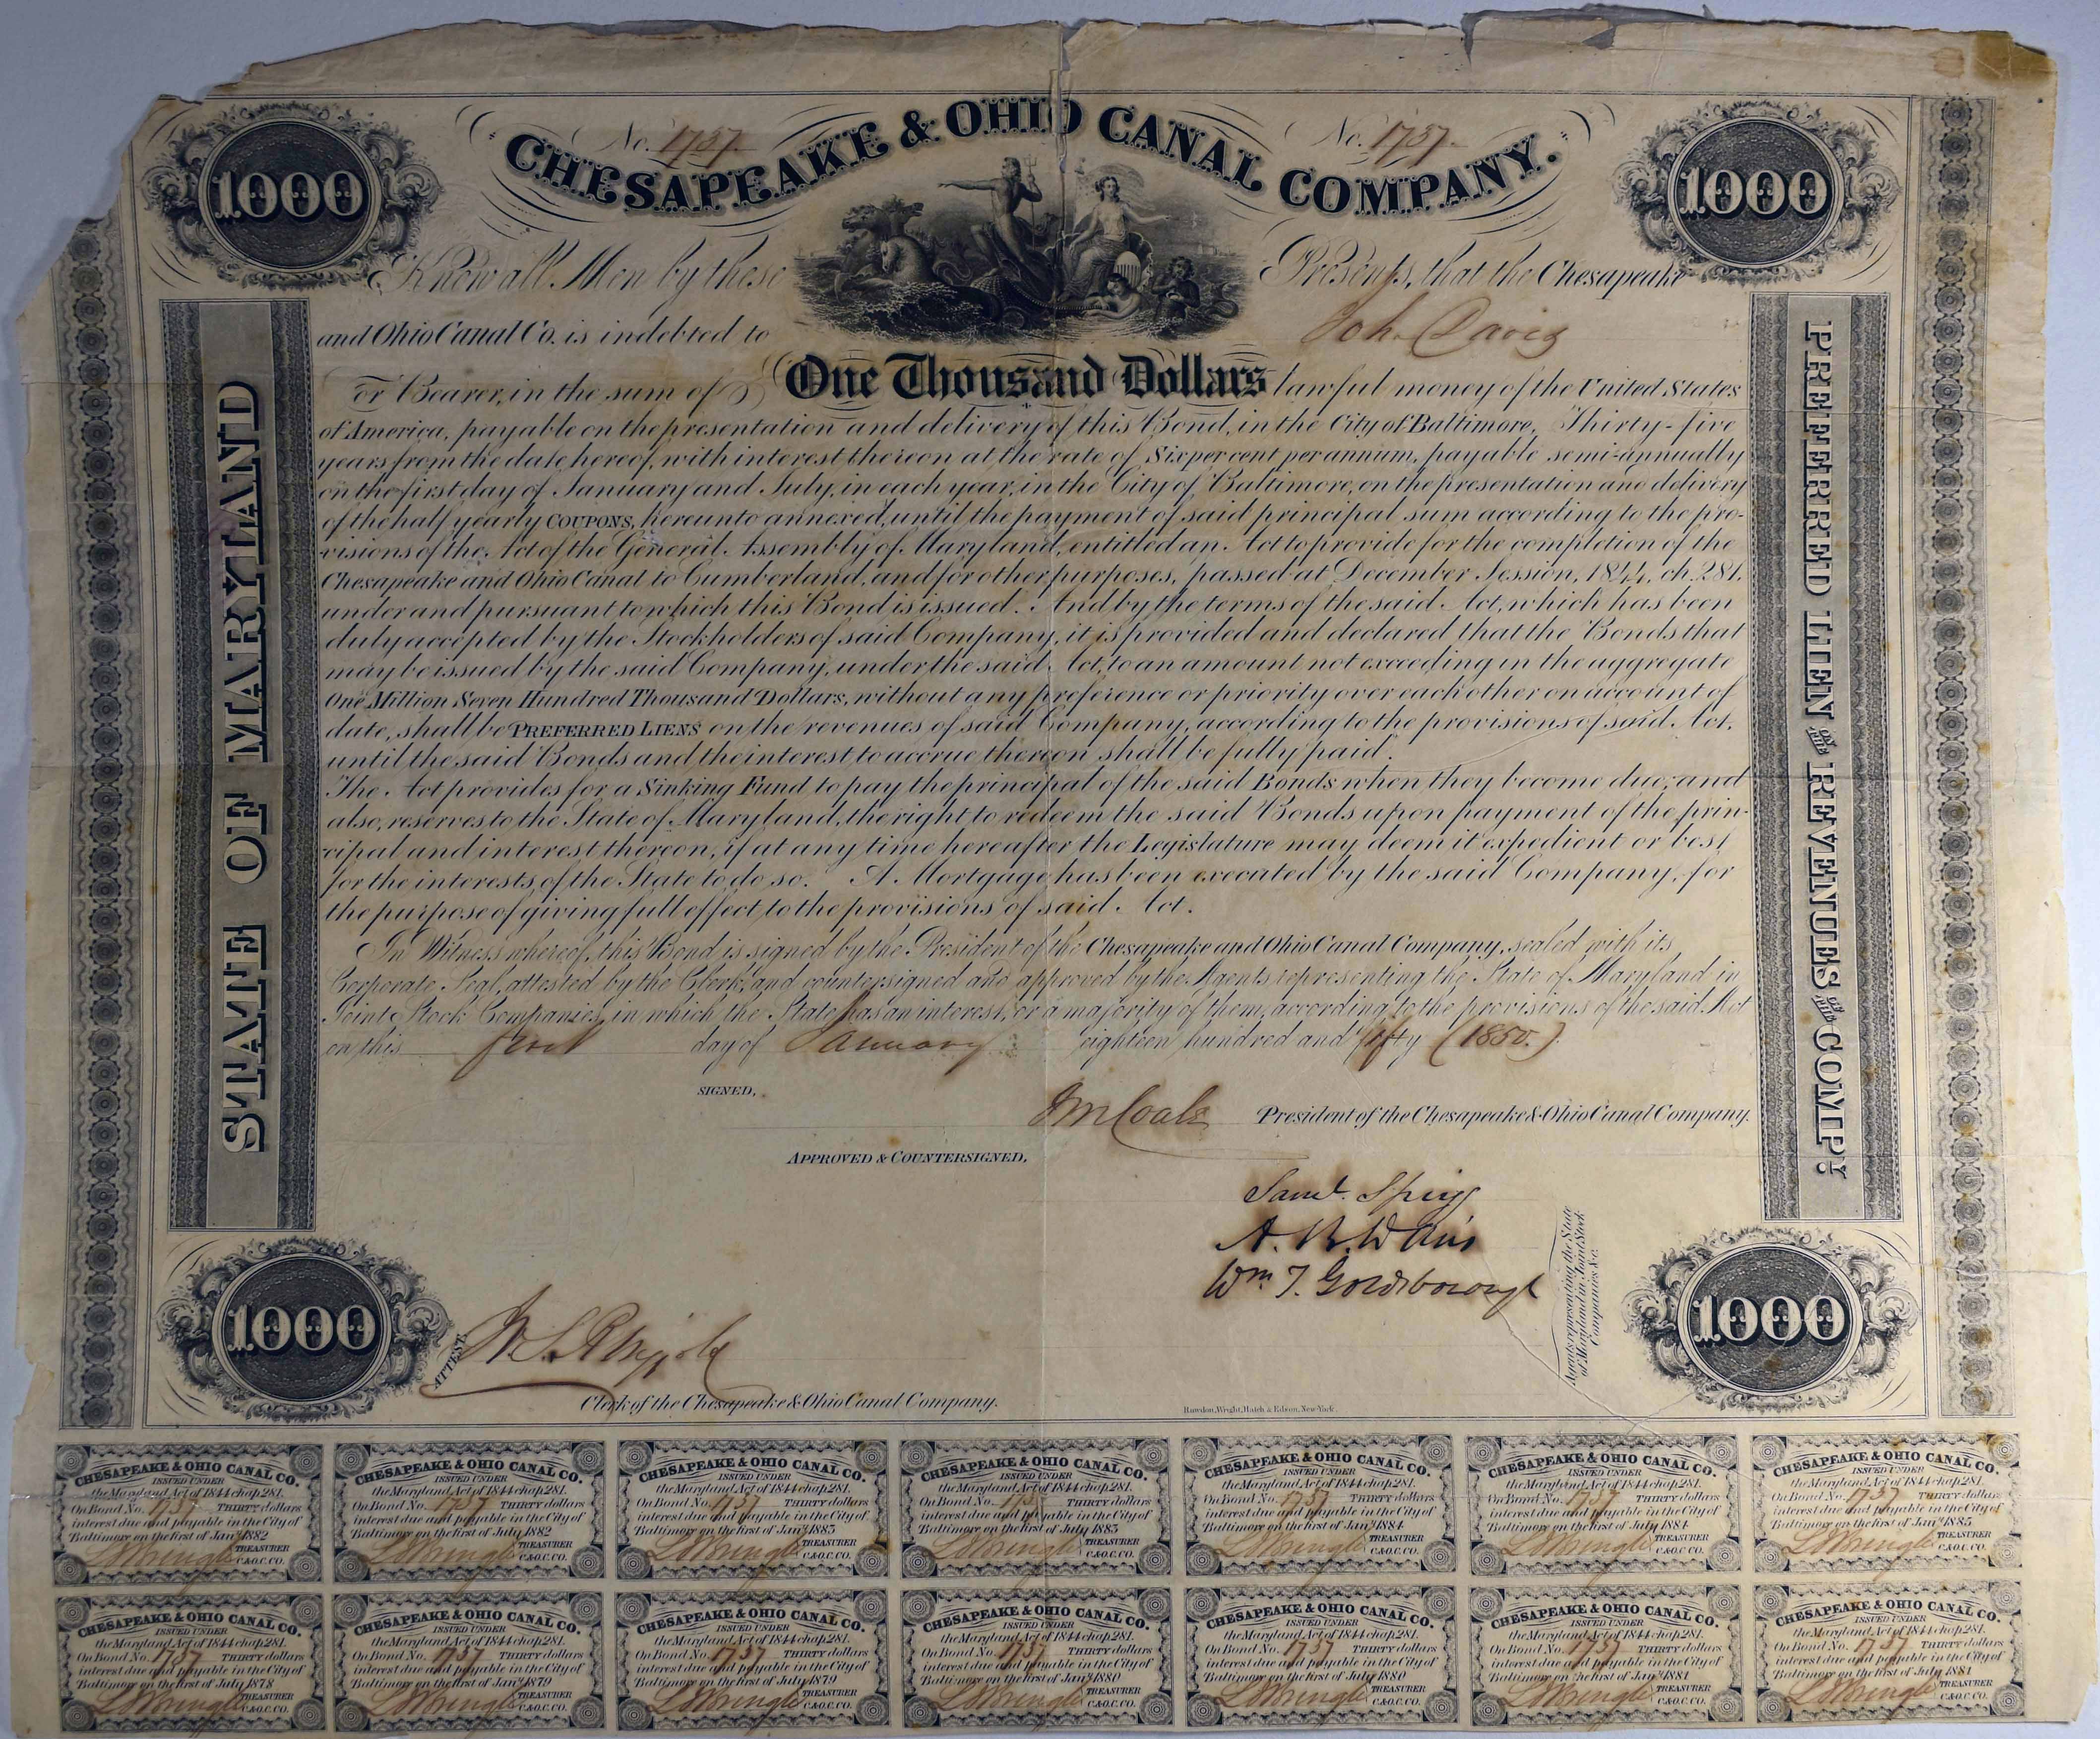 No. 1737. No. 1737.
CHESAPEAKE & OHIO CANAL COMPANY.
1000 1000
Know all Men by these Presents, that the Chesapeake
and Ohio Canal Co. is indebted to Davis
or Bearer, in the sum of One Thousand Dollars lawful money of the United States
of America, payable on the presentation and delivery of this Bond, in the City of Baltimore, Thirty-five
years from the date hereof, with interest thereon at the rate of Six per cent per annum, payable semi-annually
on the first day of January and July, in each year, in the City of Baltimore, on the presentation and delivery
of the half yearly COUPONS, hereunto annexed, until the payment of said principal sum according to the pro-
visions of the Act of the General Assembly of Maryland, entitled an Act to provide for the completion of the
Chesapeake and Ohio Canal to Cumberland, and for other purposes, passed at December Session, 1844, ch. 281.
under and pursuant to which this Bond is issued. And by the terms of the said Act, which has been
duly accepted by the Stockholders of said Company, it is provided and declared that the Bonds that
may be issued by the said Company, under the said Act, to an amount not exceeding in the aggregate
One Million Seven Hundred Thousand Dollars, without any preference or priority over each other on account of
date, shall be PREFERRED LIENS on the revenues of said Company, according to the provisions of said Act,
until the said Bonds and the interest to accrue thereon shall be fully paid.
The Act provides for a Sinking Fund to pay the principal of the said Bonds when they become due; and
also, reserves to the State of Maryland, the right to redeem the said Bonds upon payment of the prin-
cipal and interest thereon, if at any time hereafter the Legislature may deem it expedient or best
for the interests of the State to do so. A Mortgage has been executed by the said Company, for
the purpose of giving full effect to the provisions of said Act.
In Witness whereof, this Bond is signed by the President of the Chesapeake and Ohio Canal Company, sealed with its
Corporate Seal, attested by the Clerk, and countersigned and approved by the Agents representing the State of Maryland in
Joint Stock Companies, in which the State has an interest, or a majority of them, according to the provisions of the said Act
on this first day of January eighteen hundred and fifty (1850.)
SIGNED,
Jm Coale President of the Chesapeake & Ohio Canal Company.
APPROVED & COUNTERSIGNED,
Saml. Sprigg
Wm T. Goldsborough
Agents representing the State
of Maryland in Joint Stock
Companies &c.
STATE OF MARYLAND
PREFERRED LIEN ON THE REVENUES OF THE COMPY.
1000 1000
ATTEST
Clerk of the Chesapeake & Ohio Canal Company.
Rawdon, Wright, Hatch & Edson, New-York.
CHESAPEAKE & OHIO CANAL CO.
ISSUED UNDER
the Maryland Act of 1844 chap 281.
On Bond No. 1737 THIRTY dollars
interest due and payable in the City of
Baltimore on the first of Jany. 1882
TREASURER
C.& O.C. CO.
CHESAPEAKE & OHIO CANAL CO.
ISSUED UNDER
the Maryland Act of 1844 chap 281.
On Bond No. 1737 THIRTY dollars
interest due and payable in the City of
Baltimore on the first of July 1882
TREASURER
C.& O.C. CO.
CHESAPEAKE & OHIO CANAL CO.
ISSUED UNDER
the Maryland Act of 1844 chap 281.
On Bond No. 1737 THIRTY dollars
interest due and payable in the City of
Baltimore on the first of Jany. 1883
TREASURER
C.& O.C. CO.
CHESAPEAKE & OHIO CANAL CO.
ISSUED UNDER
the Maryland Act of 1844 chap 281.
On Bond No. 1737 THIRTY dollars
interest due and payable in the City of
Baltimore on the first of July 1883
TREASURER
C.& O.C. CO.
CHESAPEAKE & OHIO CANAL CO.
ISSUED UNDER
the Maryland Act of 1844 chap 281.
On Bond No. 1737 THIRTY dollars
interest due and payable in the City of
Baltimore on the first of Jany. 1884
TREASURER
C.& O.C. CO.
CHESAPEAKE & OHIO CANAL CO.
ISSUED UNDER
the Maryland Act of 1844 chap 281.
On Bond No. 1737 THIRTY dollars
interest due and payable in the City of
Baltimore on the first of July 1884
TREASURER
C.& O.C. CO.
CHESAPEAKE & OHIO CANAL CO.
ISSUED UNDER
the Maryland Act of 1844 chap 281.
On Bond No. 1737 THIRTY dollars
interest due and payable in the City of
Baltimore on the first of Jany. 1885
TREASURER
C.& O.C. CO.
CHESAPEAKE & OHIO CANAL CO.
ISSUED UNDER
the Maryland Act of 1844 chap 281.
On Bond No. 1737 THIRTY dollars
interest due and payable in the City of
Baltimore on the first of July 1878
TREASURER
C.& O.C. CO.
CHESAPEAKE & OHIO CANAL CO.
ISSUED UNDER
the Maryland Act of 1844 chap 281.
On Bond No. 1737 THIRTY dollars
interest due and payable in the City of
Baltimore on the first of Jany. 1879
TREASURER
C.& O.C. CO.
CHESAPEAKE & OHIO CANAL CO.
ISSUED UNDER
the Maryland Act of 1844 chap 281.
On Bond No. 1737 THIRTY dollars
interest due and payable in the City of
Baltimore on the first of July 1879
TREASURER
C.& O.C. CO.
CHESAPEAKE & OHIO CANAL CO.
ISSUED UNDER
the Maryland Act of 1844 chap 281.
On Bond No. 1737 THIRTY dollars
interest due and payable in the City of
Baltimore on the first of Jany. 1880
TREASURER
C.& O.C. CO.
CHESAPEAKE & OHIO CANAL CO.
ISSUED UNDER
the Maryland Act of 1844 chap 281.
On Bond No. 1737 THIRTY dollars
interest due and payable in the City of
Baltimore on the first of July 1880
TREASURER
C.& O.C. CO.
CHESAPEAKE & OHIO CANAL CO.
ISSUED UNDER
the Maryland Act of 1844 chap 281.
On Bond No. 1737 THIRTY dollars
interest due and payable in the City of
Baltimore on the first of Jany. 1881
TREASURER
C.& O.C. CO.
CHESAPEAKE & OHIO CANAL CO.
ISSUED UNDER
the Maryland Act of 1844 chap 281.
On Bond No. 1737 THIRTY dollars
interest due and payable in the City of
Baltimore on the first of July 1881
TREASURER
C.& O.C. CO.